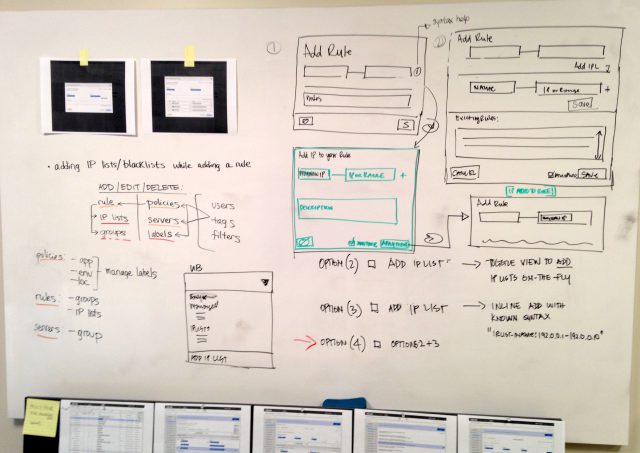 syntax help
1
Add Rule
Notes
S
2
Add Rule
Add IPL
NAME
IP or Range
+
SAVE
Existing Rules:
CANCEL
SAVE
IP ADD TO RULE
Add Rule
Add IP to your Rule
IP or RANGE
+
DESCRIPTION
• adding IP lists/blacklists while adding a rule
ADD | EDIT | DELETE:
rule
policies
users
IP lists
servers
tags
groups
labels
filters
policies:
- app
- env
- loc
manage labels
rules:
- groups
- IP lists
servers:
- group
IP LISTS
ADD IP LIST
OPTION (2) ADD IP LIST
TOGGLE VIEW TO ADD
IP LISTS ON-THE-FLY
OPTION (3) ADD IP LIST
INLINE ADD WITH
KNOWN SYNTAX
OPTION (4) OPTIONS 2 + 3